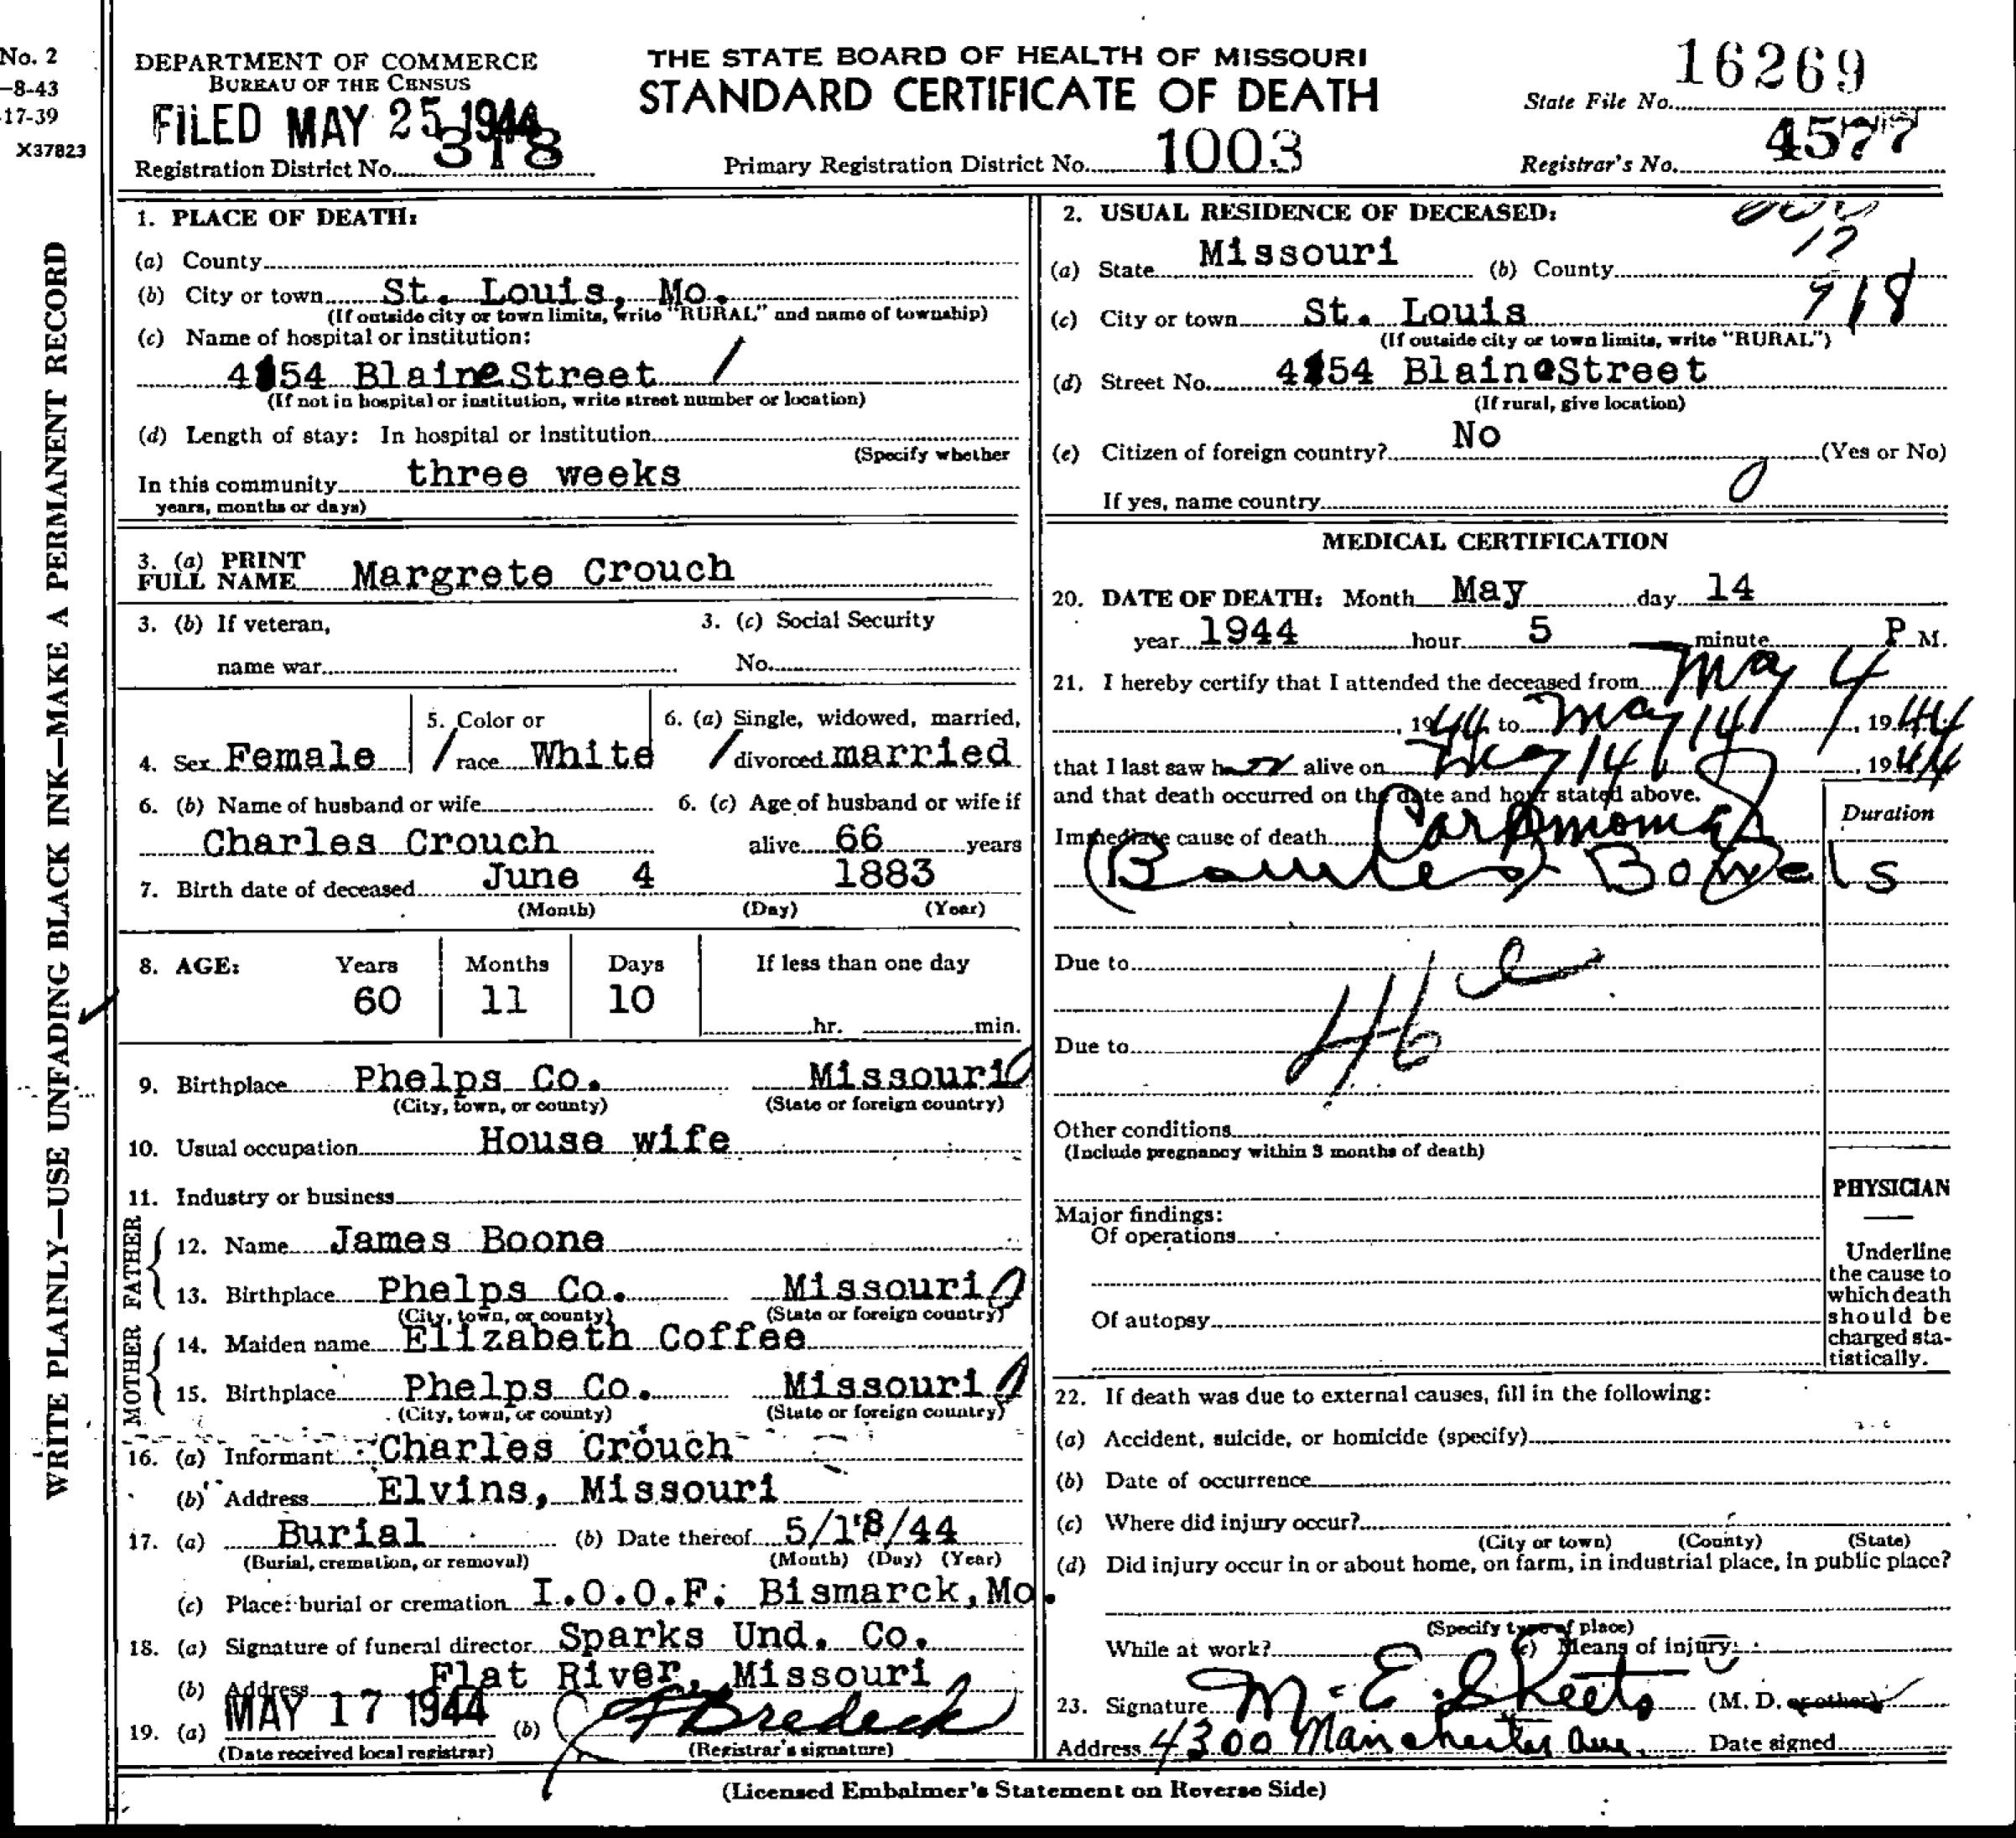 No. 2
-8-43
-17-39
X37823
WRITE PLAINLY—USE UNFADING BLACK INK—MAKE A PERMANENT RECORD
DEPARTMENT OF COMMERCE
BUREAU OF THE CENSUS
FILED MAY 25 1944
Registration District No. 318
THE STATE BOARD OF HEALTH OF MISSOURI
STANDARD CERTIFICATE OF DEATH
Primary Registration District No. 1003
State File No. 16269
Registrar's No. 4577
1. PLACE OF DEATH:
(a) County
(b) City or town St. Louis, Mo.
(If outside city or town limits, write "RURAL" and name of township)
(c) Name of hospital or institution:
4154 Blaine Street /
(If not in hospital or institution, write street number or location)
(d) Length of stay: In hospital or institution
(Specify whether
In this community three weeks
years, months or days)
2. USUAL RESIDENCE OF DECEASED:
12
(a) State Missouri (b) County
918
(c) City or town St. Louis
(If outside city or town limits, write "RURAL")
(d) Street No. 4154 Blaine Street
(If rural, give location)
(e) Citizen of foreign country? No (Yes or No)
0
If yes, name country
3. (a) PRINT
FULL NAME Margrete Crouch
3. (b) If veteran,
name war
3. (c) Social Security
No.
4. Sex Female
5. Color or
/ race White
6. (a) Single, widowed, married,
/ divorced married
6. (b) Name of husband or wife
Charles Crouch
6. (c) Age of husband or wife if
alive 66 years
7. Birth date of deceased June 4 1883
(Month) (Day) (Year)
8. AGE: Years Months Days If less than one day
60 11 10
hr. min.
9. Birthplace Phelps Co. Missouri 0
(City, town, or county) (State or foreign country)
10. Usual occupation House wife
11. Industry or business
FATHER
12. Name James Boone
13. Birthplace Phelps Co. Missouri 0
(City, town, or county) (State or foreign country)
MOTHER
14. Maiden name Elizabeth Coffee
15. Birthplace Phelps Co. Missouri 0
(City, town, or county) (State or foreign country)
16. (a) Informant Charles Crouch
(b) Address Elvins, Missouri
17. (a) Burial (b) Date thereof 5/18/44
(Burial, cremation, or removal) (Month) (Day) (Year)
(c) Place: burial or cremation I.O.O.F. Bismarck, Mo.
18. (a) Signature of funeral director Sparks Und. Co.
(b) Address Flat River, Missouri
19. (a) MAY 17 1944 (b) J F Bredeck
(Date received local registrar) (Registrar's signature)
MEDICAL CERTIFICATION
20. DATE OF DEATH: Month May day 14
year 1944 hour 5 minute P M.
21. I hereby certify that I attended the deceased from May 4
, 1944 to May 14, 1944
that I last saw her alive on May 14, 1944
and that death occurred on the date and hour stated above.
Duration
Immediate cause of death Carcinoma
Bowels Bowels
Due to
46 e
Due to
Other conditions
(Include pregnancy within 3 months of death)
Major findings:
Of operations
Of autopsy
PHYSICIAN
Underline
the cause to
which death
should be
charged sta-
tistically.
22. If death was due to external causes, fill in the following:
(a) Accident, suicide, or homicide (specify)
(b) Date of occurrence
(c) Where did injury occur?
(City or town) (County) (State)
(d) Did injury occur in or about home, on farm, in industrial place, in public place?
(Specify type of place)
While at work? (e) Means of injury
23. Signature M. E. Skeets (M. D. or other)
Address 4300 Manchester Ave. Date signed
(Licensed Embalmer's Statement on Reverse Side)